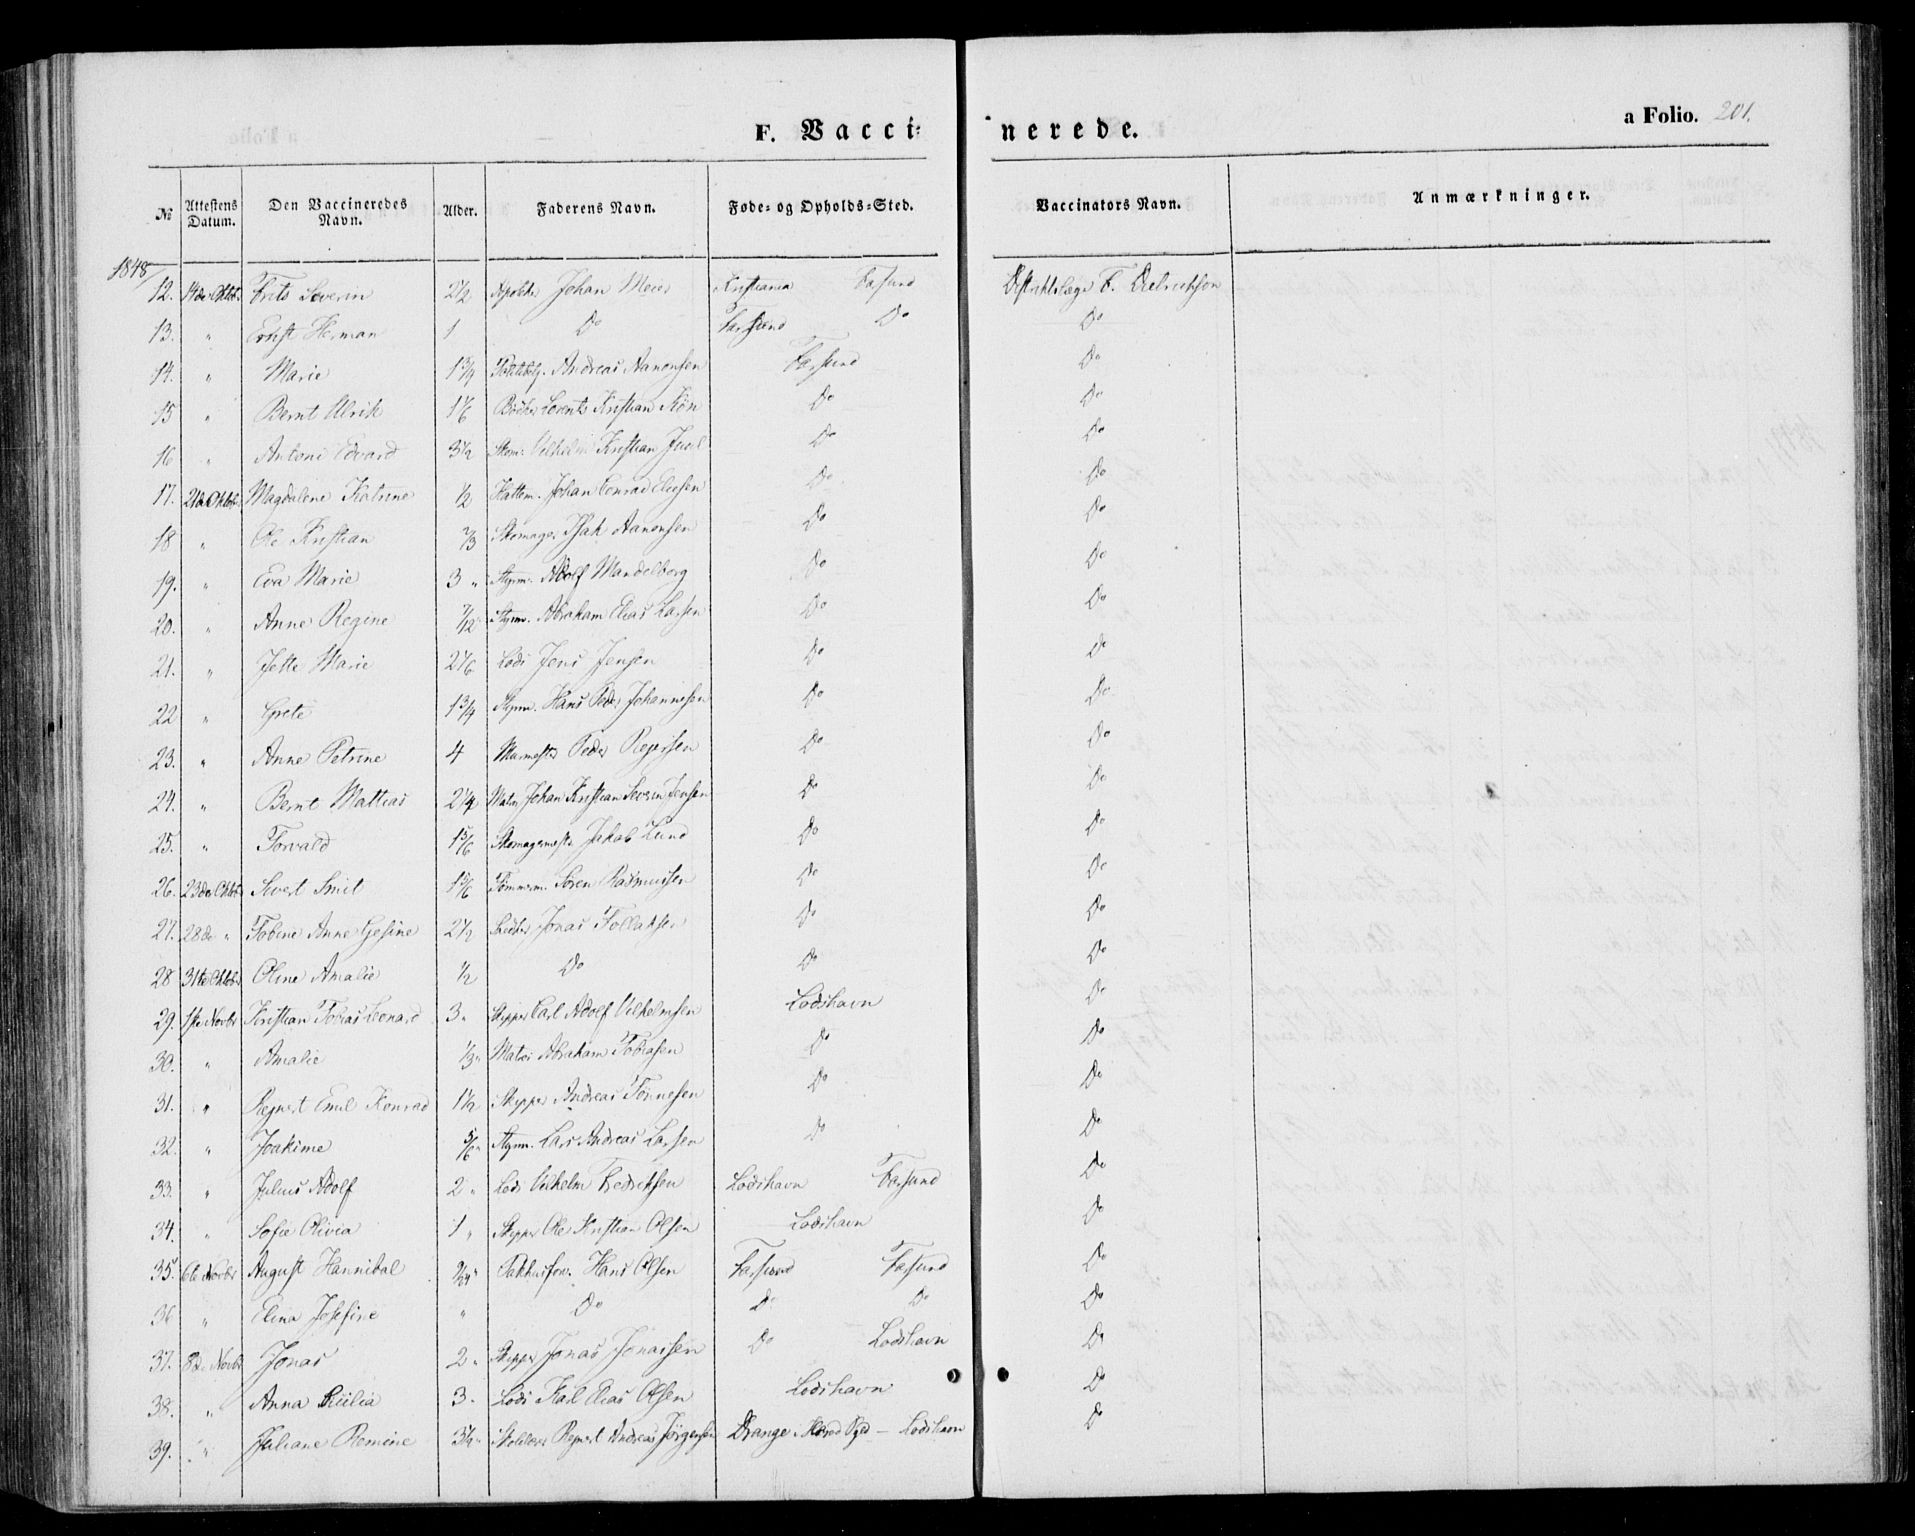 F. Vaccinerede.
a Folio. 201.
№ Attestens Datum. Den Vaccineredes Navn. Alder. Faderens Navn. Føde- og Opholds-Sted. Vaccinators Navn. Anmærkninger.
1848
12. 14de Oktbr Frits Severin 2½ Apotheker Johan Meier Kristiania Farsund Distriktslæge F. Dietrichson
13. " Ernst Herman 1 Do Farsund Do Do
14. " Marie 1¾ Andreas Aanonsen Farsund Do
15 " Bernt Ulrik 1⅙ Lorents Kristian Do Do
16 " Antoni Edvard 3½ Skom. Vilhelm Kristian Juul Do Do
17. 21de Oktbr Magdalene Katrine ½ Hattem. Johan Conrad Do Do
18 " Ole Kristian ⅔ Skomager Isak Aanonsen Do Do
19. " Eva Marie 3 " Styrm. Adolf Mandelborg Do Do
20. " Anne Regine 7/12 Styrm. Abraham Elias Larsen Do Do
21. " Jette Marie 2⅙ Lods Jens Jensen Do Do
22 " Grete 1¾ Styrm. Hans Peder Johannesen Do Do
23. " Anne Petrine 4 Murmester Peder Do Do
24. " Bernt Mattias 2¼ Matr. Johan Kristian Severin Jensen Do Do
25. " Torvald 1⅚ Skomagermestr Jakob Lund Do Do
26. 23de Oktbr Sivert Smit 1⅚ Tømmerm. Søren Rasmussen Do Do
27. 28de " Tobine Anne Gesine 2½ Jonas Tollaksen Do Do
28 31te Oktbr Oline Amalie ½ Do Do Do
29. 1ste Novbr Kristian Tobias Leonard 3 " Skipper Carl Adolf Vilhelmsen Lodshavn Do
30. " Amalie ⅓ " Matros Abraham Tobiasen Do Do
31. " Rejnert Emil Konrad 1½ Skipper Andreas Tønnesen Do Do
32. " Joakime ⅚ " Styrm. Lars Andreas Larsen Do Do
33. " Julius Adolf 2 " Lods Vilhelm Fredriksen Lodshavn Farsund Do
34. " Sofie Olivia 1 " Skipper Ole Kristian Olsen Lodshavn Do
35. 6te Novbr August Hannibal Pakhusforv. Hans Olsen Farsund Farsund Do
36 " Elina Josefine " Do Do Do Do
37. 8de Novbr Jonas 2 " Skipper Jonas Jonassen Do Lodshavn Do
38. " Anna 3 " Lods Karl Elias Olsen Lodshavn Do
39. " Juliane Skolelærer Rejnert Andreas Jørgensen Drange i Herred Pgd – Lodshavn Do